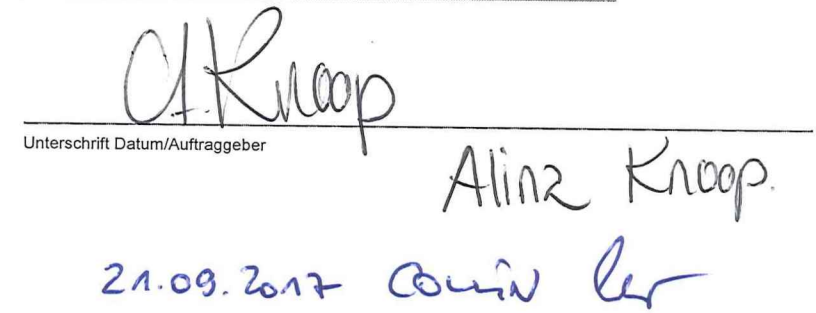 A. Knoop
Unterschrift Datum/Auftraggeber
Alina Knoop.
21.09.2017